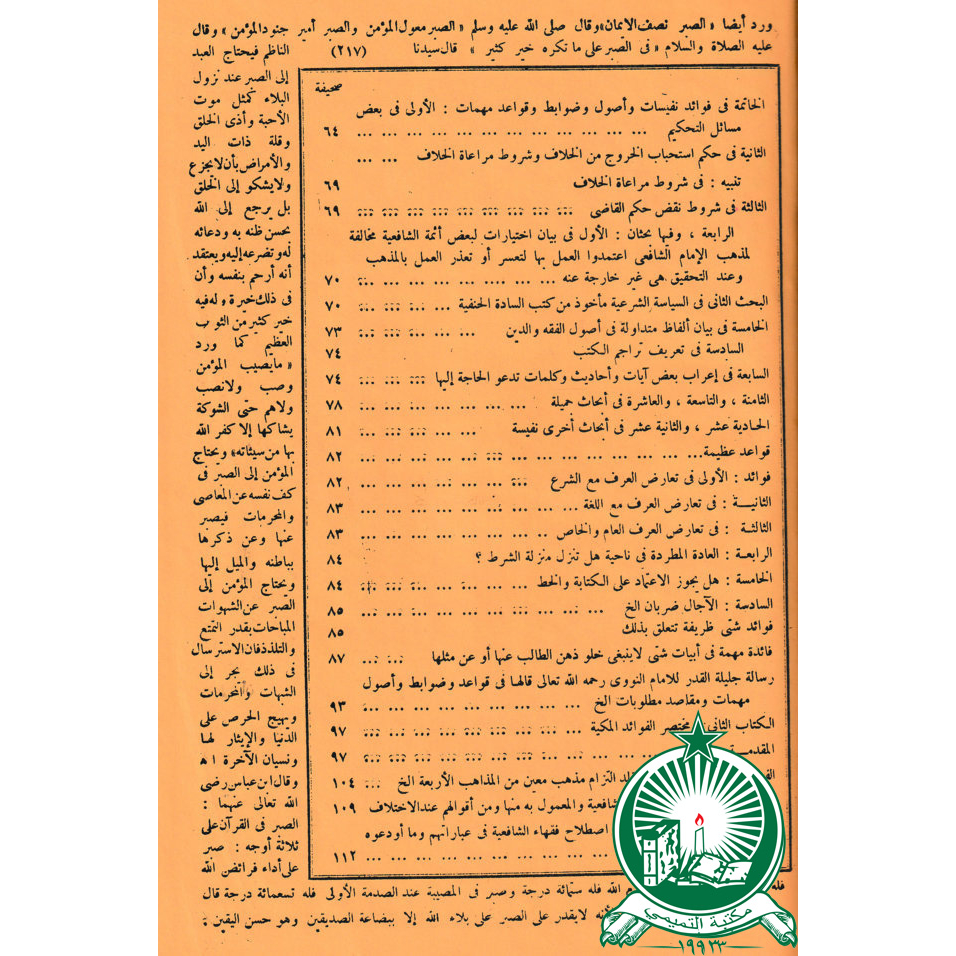 ورد أيضا «الصبر نصف الإيمان» وقال صلى الله عليه وسلم «الصبر معول المؤمن والصبر أمير جنود المؤمن» وقال
عليه الصلاة والسلام «فى الصبر على ما تكره خير كثير» قال سيدنا (٢١٧) الناظم فيحتاج العبد
إلى الصبر عند نزول
البلاء كمثل موت
الأحبة وأذى الخلق
وقلة ذات اليد
والأمراض بأن لا يجزع
ولا يشكو إلى الخلق
بل يرجع إلى الله
بحسن ظنه به ودعائه
له وتضرعه إليه ويعتقد
أنه أرحم بنفسه وأن
فى ذلك خيرة وله فيه
خير كثير من الثوب
العظيم كما ورد
«ما يصيب المؤمن
وصب ولا نصب
ولا هم حتى الشوكة
يشاكها إلا كفر الله
بها من سيئاته» ويحتاج
المؤمن إلى الصبر فى
كف نفسه عن المعاصى
والمحرمات فيصبر
عنها وعن ذكرها
بباطنه والميل إليها
ويحتاج المؤمن إلى
الصبر عن الشهوات
المباحات بقدر التمتع
والتلذذ فان الاسترسال
فى ذلك يجر إلى
الشبهات والمحرمات
ويهيج الحرص على
الدنيا والإيثار لها
ونسيان الآخرة اه
وقال ابن عباس رضى
الله تعالى عنهما :
الصبر فى القرآن على
ثلاثة أوجه : صبر
على أداء فرائض الله
صحيفة
الخاتمة فى فوائد نفيسات وأصول وضوابط وقواعد مهمات : الأولى فى بعض
مسائل التحكيم ... ٦٤
الثانية فى حكم استحباب الخروج من الخلاف وشروط مراعاة الخلاف ...
تنبيه : فى شروط مراعاة الخلاف ٦٩
الثالثة فى شروط نقض حكم القاضى ... ٦٩
الرابعة ، وفيها بحثان : الأول فى بيان اختيارات لبعض أئمة الشافعية مخالفة
لمذهب الإمام الشافعى اعتمدوا العمل بها لتعسر أو تعذر العمل بالمذهب
وعند التحقيق هى غير خارجة عنه ... ٧٠
البحث الثانى فى السياسة الشرعية مأخوذ من كتب السادة الحنفية ... ٧٠
الخامسة فى بيان ألفاظ متداولة فى أصول الفقه والدين ... ٧٣
السادسة فى تعريف تراجم الكتب ٧٤
السابعة فى إعراب بعض آيات وأحاديث وكلمات تدعو الحاجة إليها ... ٧٤
الثامنة ، والتاسعة ، والعاشرة فى أبحاث جميلة ... ٧٨
الحادية عشر ، والثانية عشر فى أبحاث أخرى نفيسة ... ٨١
قواعد عظيمة ... ٨٢
فوائد : الأولى فى تعارض العرف مع الشرع ... ٨٢
الثانيـــة : فى تعارض العرف مع اللغة ... ٨٣
الثالثـة : فى تعارض العرف العام والخاص ... ٨٣
الرابعـة : العادة المطردة فى ناحية هل تنزل منزلة الشرط ؟ ٨٤
الخامسة : هل يجوز الاعتماد على الكتابة والخط ... ٨٤
السادسة : الآجال ضربان الخ ... ٨٥
فوائد شتى ظريفة تتعلق بذلك ٨٥
فائدة مهمة فى أبيات شتى لا ينبغى خلو ذهن الطالب عنها أو عن مثلها ... ٨٧
رسالة جليلة القدر للامام النووى رحمه الله تعالى قالها فى قواعد وضوابط وأصول
مهمات ومقاصد مطلوبات الخ ... ٩٣
الكتاب الثانى مختصر الفوائد المكية ... ٩٧
المقدمـــة ... ٩٧
التزام مذهب معين من المذاهب الأربعة الخ ... ١٠٤
والمعمول به منها ومن أقوالهم عند الاختلاف ١٠٩
اصطلاح فقهاء الشافعية فى عباراتهم وما أودعوه
... ١١٢
فله الله فله ستمائة درجة وصبر فى المصيبة عند الصدمة الأولى فله تسعمائة درجة قال
لا يقدر على الصبر على بلاء الله إلا ببضاعة الصديقين وهو حسن اليقين :
مكتبة التميمي
١٩٩٣٣